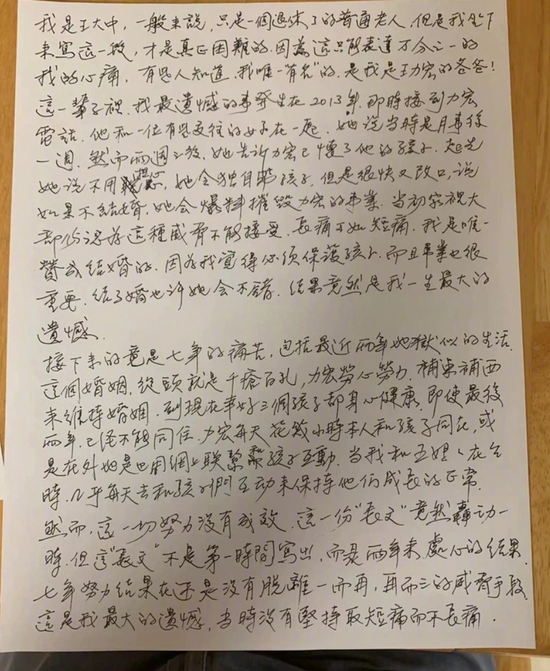 我是王大中，一般来說，只是一個退休了的普通老人，但是我坐下
來寫這一做，才是真正困難的。因為這只能表達万分之一的
我的心痛，有些人知道，我唯一"有名"的，是我是王力宏的爸爸！
這一輩子裡，我最遺憾的事發生在2013年，那時接到力宏
電話，他和一位有些交往的女子在一起，她說當時是月事後
一週，然而兩週之後，她告訴力宏已懷了他的孩子，起先
她說不用担心，她会獨自帶孩子，但是很快又改口，說
如果不結婚，她会爆料摧毀力宏的事業，當初家祝大
部份認為這種威脅不能接受，長痛不如短痛，我是唯一
贊成結婚的，因為我覺得必須保護孩子，而且事業也很
重要，結了婚也許她会不錯，結果竟然是我一生最大的
遺憾。
接下來的竟是七年的痛苦，包括最近兩年地獄似的生活
這個婚姻，從頭就是千瘡百孔，力宏勞心勞力，補東補西
來維持婚姻，到現在幸好三個孩子都身心健康，即使最後
兩年已經不能同住，力宏每天花幾小時本人和孩子同在，或
是在外地是也用網上聯繫和孩子互動，當我和王媽在台
時，几乎每天去和孩子們互動來保持他們成長的正常，
然而，這一切努力没有成效，這一份"長文"竟然轟动一
時，但這"長文"不是第一時間寫出，而是兩年來處心的結果，
七年努力結果在还是没有脱離一而再，再而三的威脅手段
這是我最大的遺憾，當時没有堅持取短痛而不長痛．